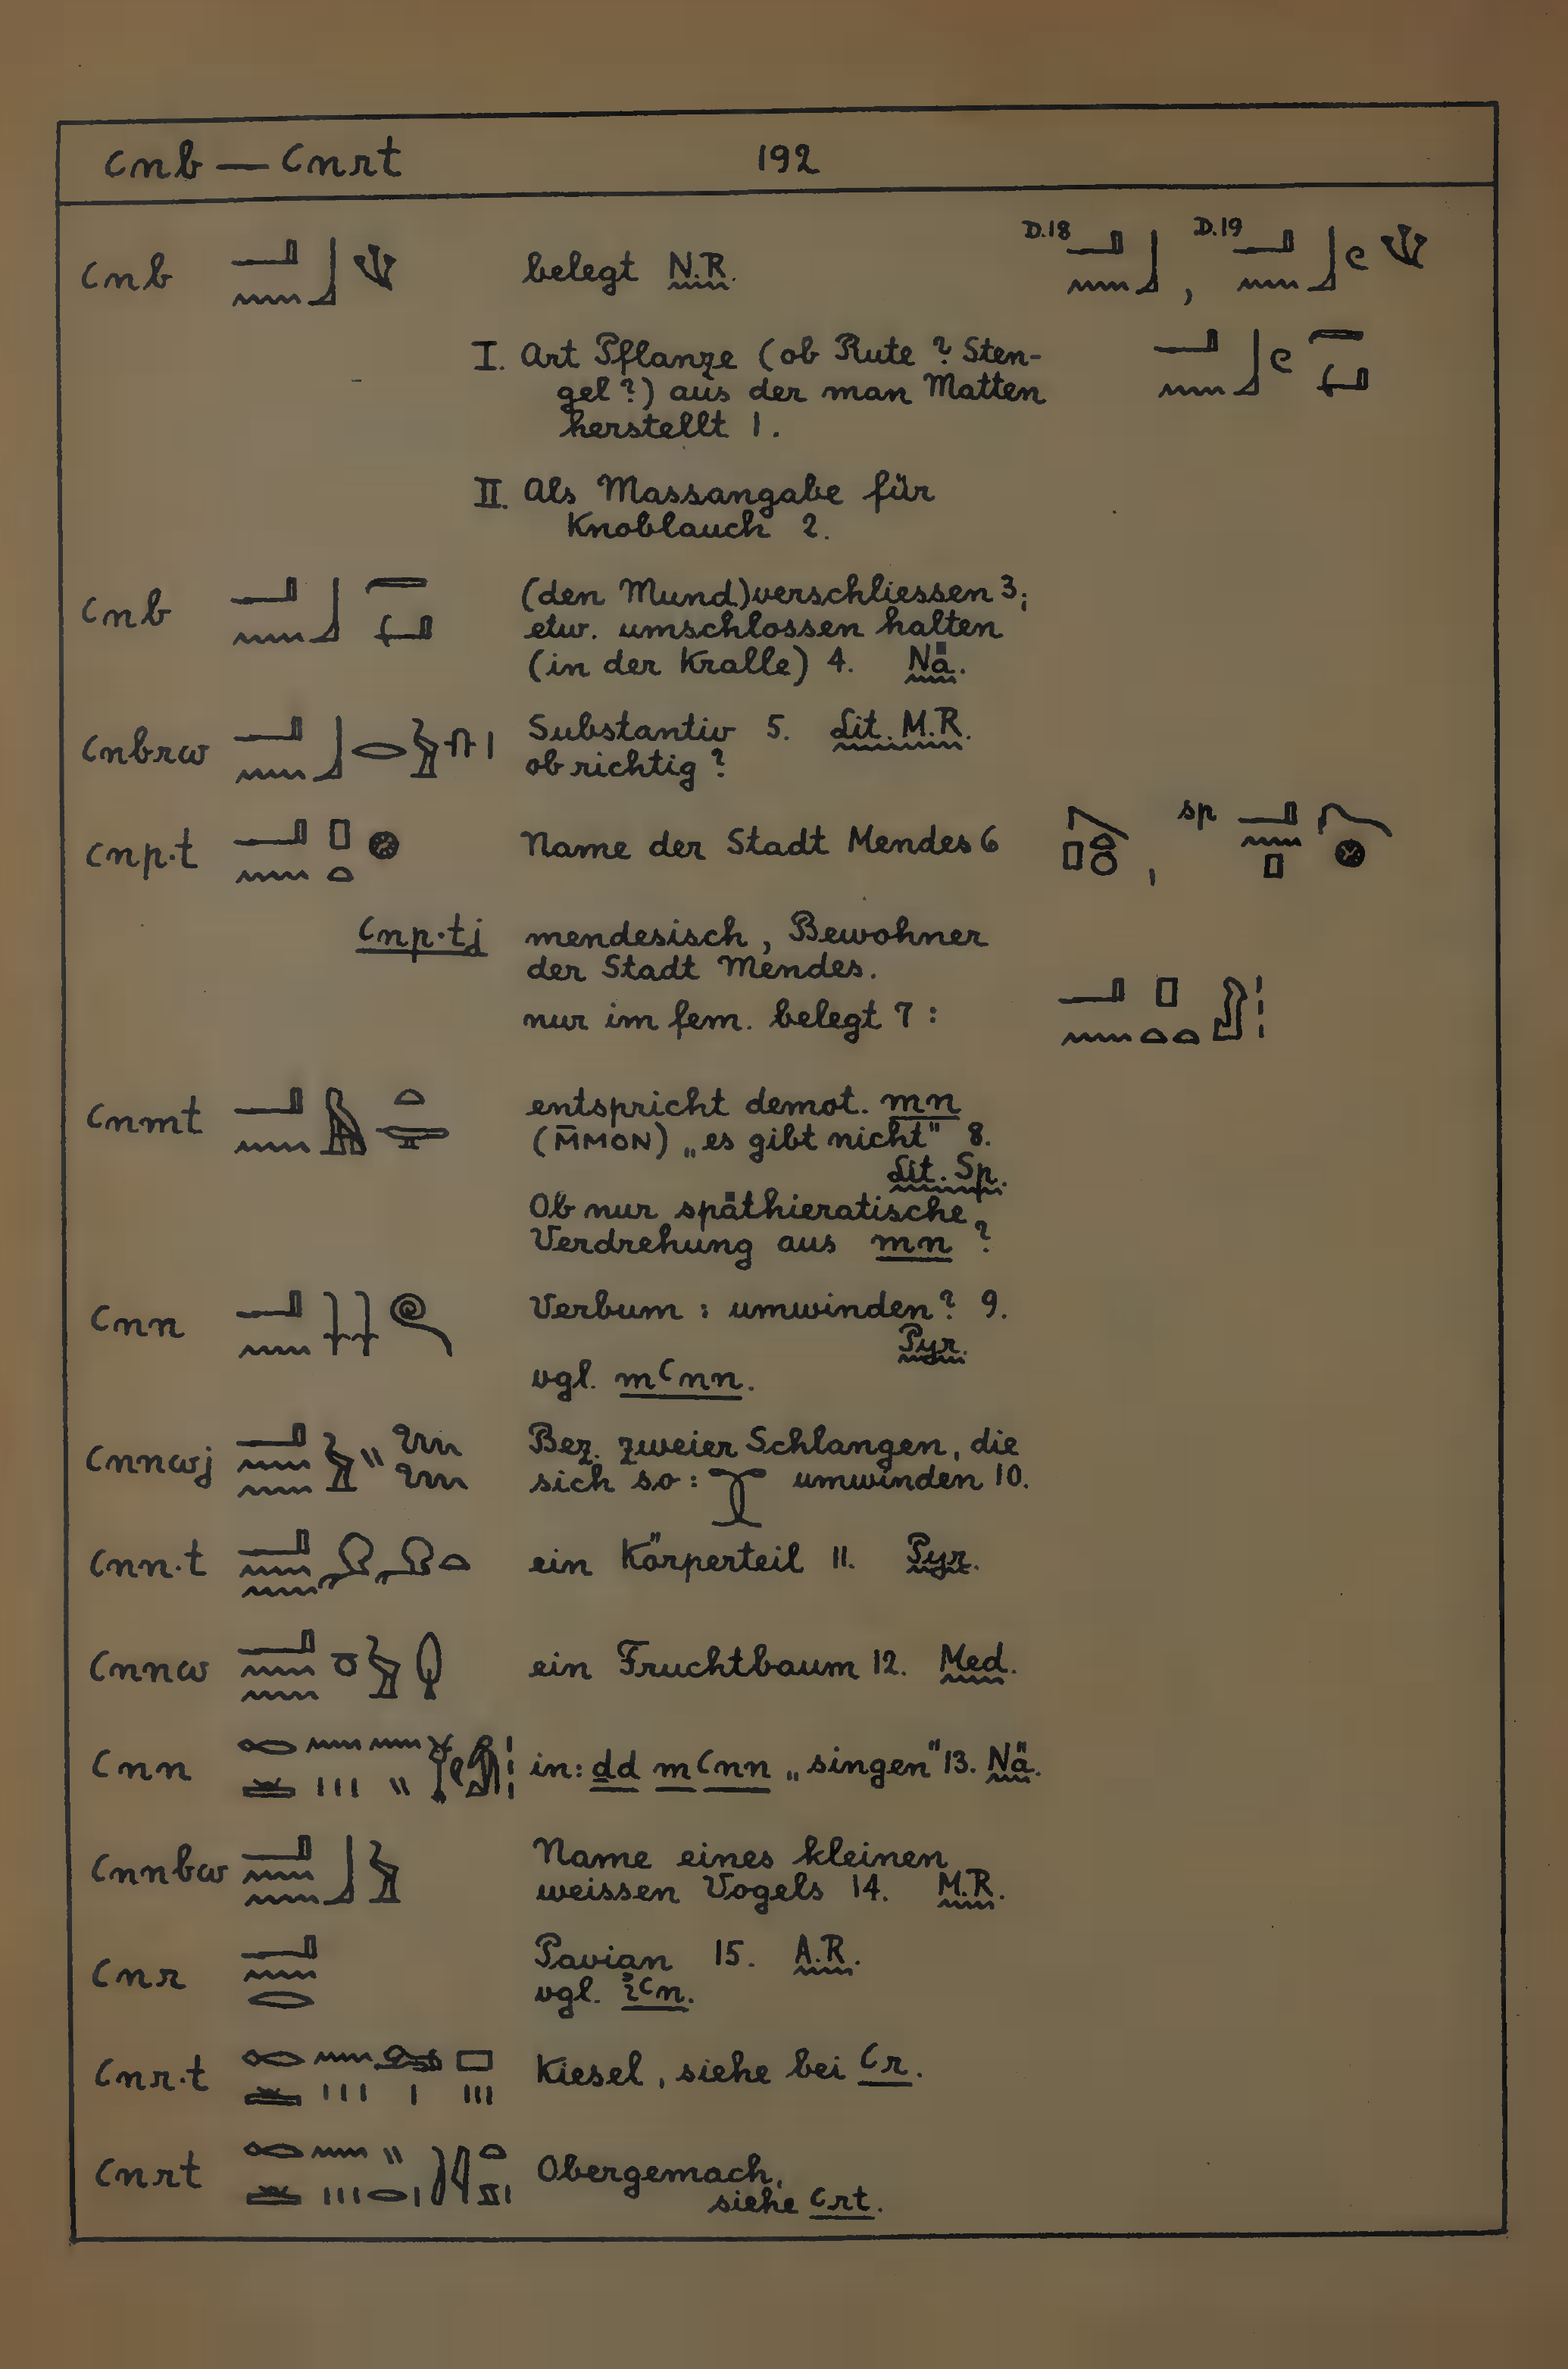 ꜥnb — ꜥnrt 192
ꜥnb belegt N.R. D.18 , D.19
I. Art Pflanze (ob Rute ? Sten-
gel ?) aus der man Matten
herstellt 1.
II. Als Massangabe für
Knoblauch 2.
ꜥnb (den Mund) verschliessen 3;
etw. umschlossen halten
(in der Kralle) 4. Nä.
ꜥnbrw Substantiv 5. Lit. M.R.
ob richtig ?
ꜥnp.t Name der Stadt Mendes 6 , sp
ꜥnp.tj mendesisch, Bewohner
der Stadt Mendes.
nur im fem. belegt 7 :
ꜥnmt entspricht demot. mn
(M̄MON) „es gibt nicht" 8.
Lit. Sp.
Ob nur späthieratische
Verdrehung aus mn ?
ꜥnn Verbum : umwinden ? 9.
Pyr.
vgl. mꜥnn.
ꜥnnwj Bez. zweier Schlangen, die
sich so : umwinden 10.
ꜥnn.t ein Körperteil 11. Pyr.
ꜥnnw ein Fruchtbaum 12. Med.
ꜥnn in: ḏd m ꜥnn „singen" 13. Nä.
ꜥnnbw Name eines kleinen
weissen Vogels 14. M.R.
ꜥnr Pavian 15. A.R.
vgl. iꜥn.
ꜥnr.t Kiesel, siehe bei ꜥr.
ꜥnrt Obergemach,
siehe ꜥrt.